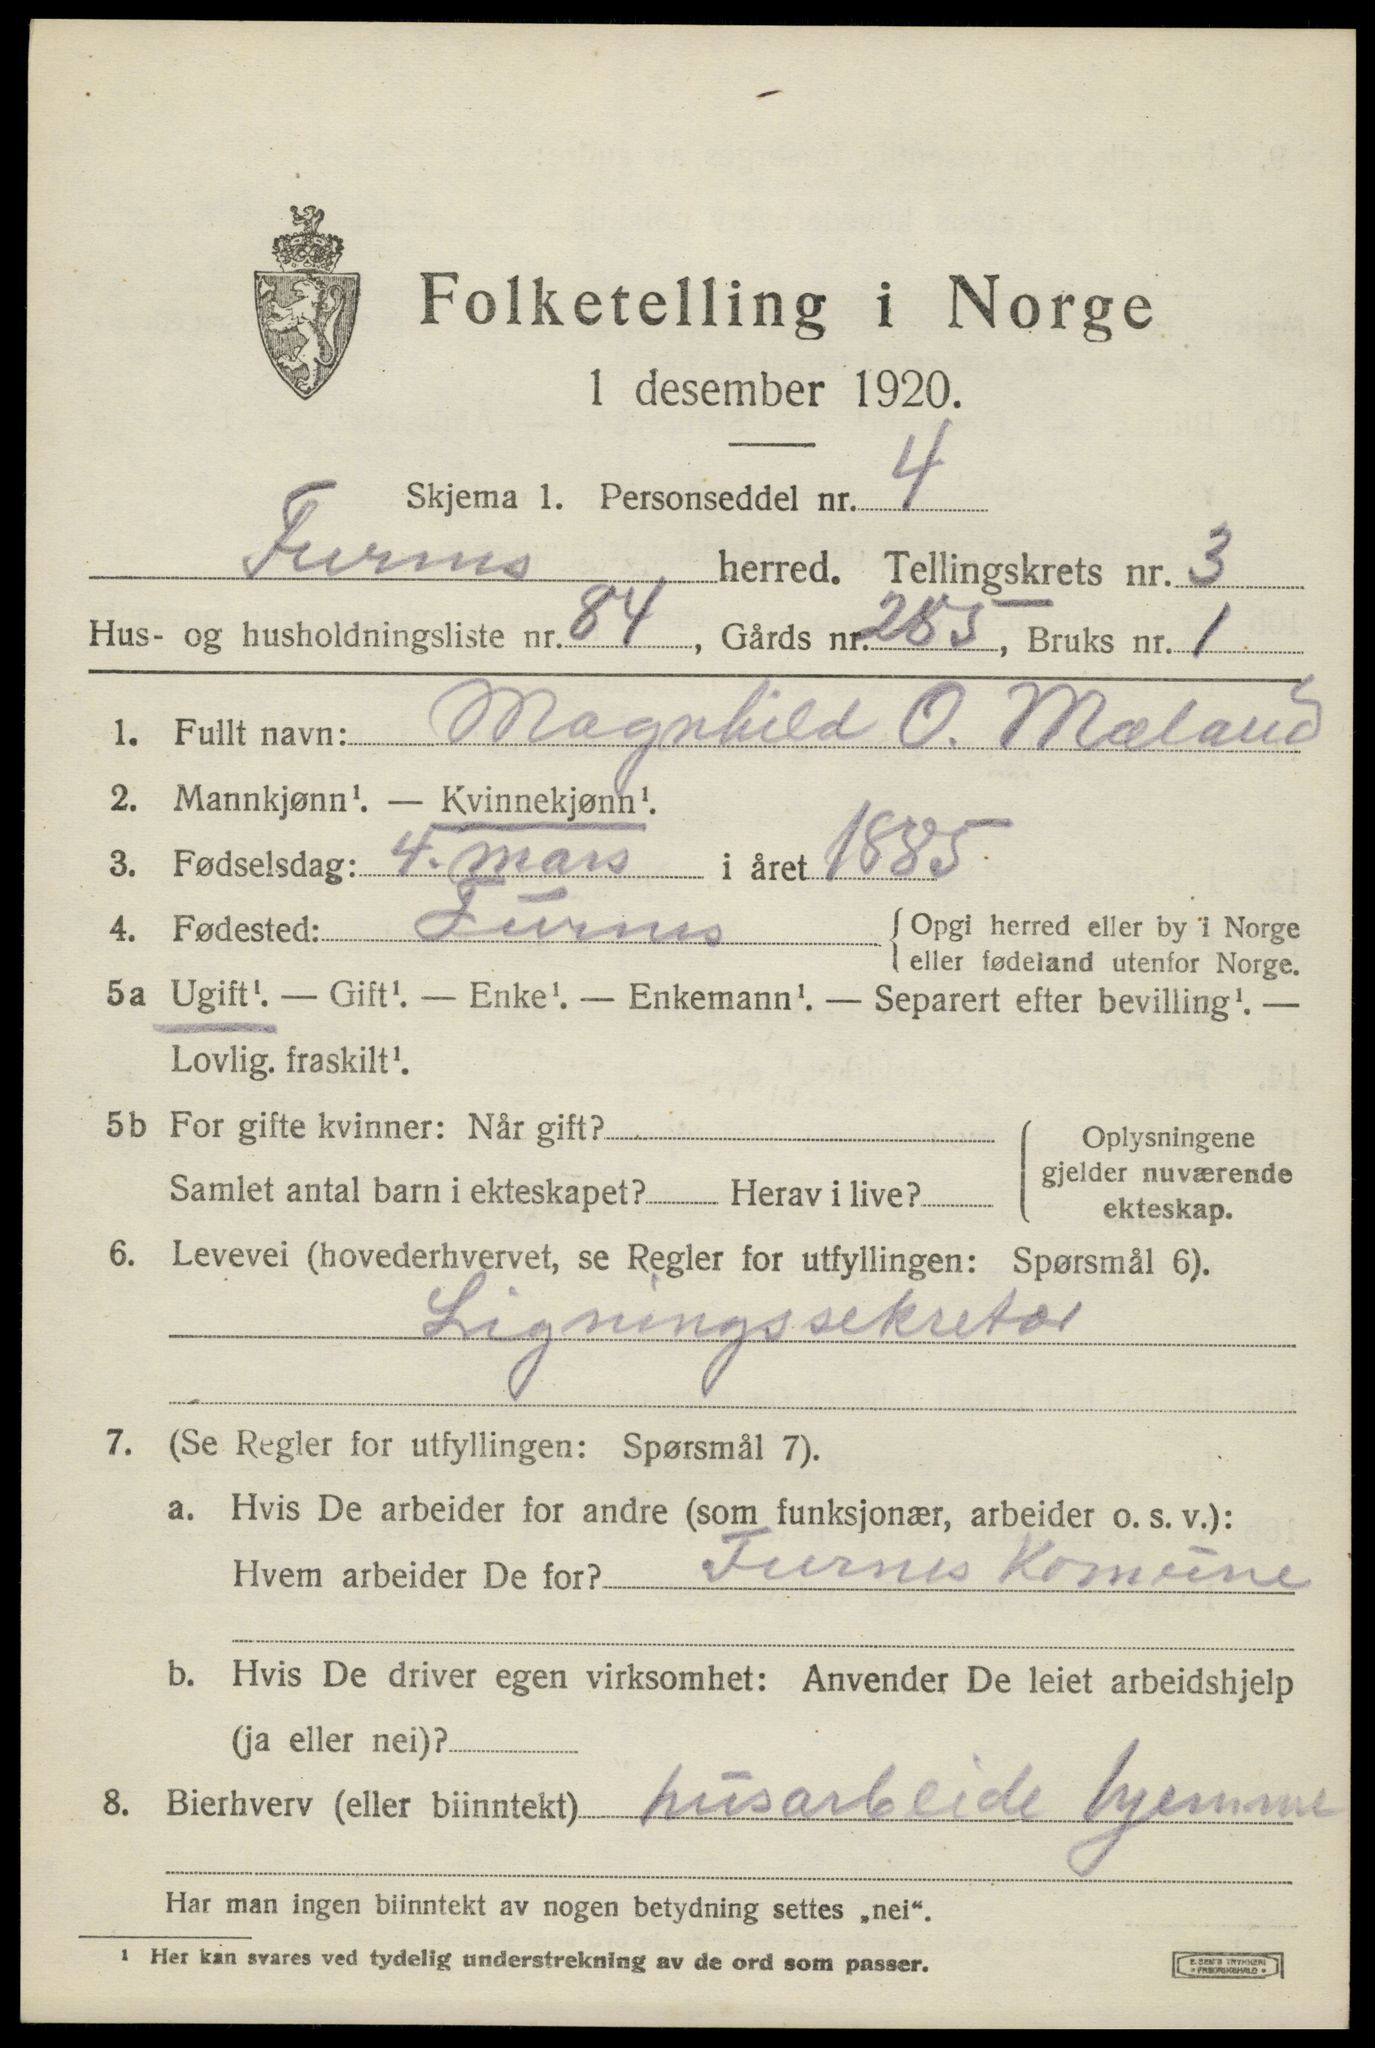 Folketelling i Norge
1 desember 1920.
Skjema 1. Personseddel nr. 4
Furnes herred. Tellingskrets nr. 3
Hus- og husholdningsliste nr. 84, Gårds nr. 285, Bruks nr. 1
1. Fullt navn: Magnhild O. Mæland
2. Mannkjønn¹. — Kvinnekjønn¹.
3. Fødselsdag: 4. mars i året 1885
4. Fødested: Furnes { Opgi herred eller by i Norge
eller fødeland utenfor Norge.
5a Ugift¹. — Gift¹. — Enke¹. — Enkemann¹. — Separert efter bevilling¹. —
Lovlig. fraskilt¹.
5b For gifte kvinner: Når gift?
Samlet antal barn i ekteskapet? Herav i live?
Oplysningene
gjelder nuværende
ekteskap.
6. Levevei (hovederhvervet, se Regler for utfyllingen: Spørsmål 6).
Ligningssekretær
7. (Se Regler for utfyllingen: Spørsmål 7).
a. Hvis De arbeider for andre (som funksjonær, arbeider o. s. v.):
Hvem arbeider De for? Furnes Komune
b. Hvis De driver egen virksomhet: Anvender De leiet arbeidshjelp
(ja eller nei)?
8. Bierhverv (eller biinntekt) husarbeide hjemme
Har man ingen biinntekt av nogen betydning settes „nei“.
¹ Her kan svares ved tydelig understrekning av de ord som passer.